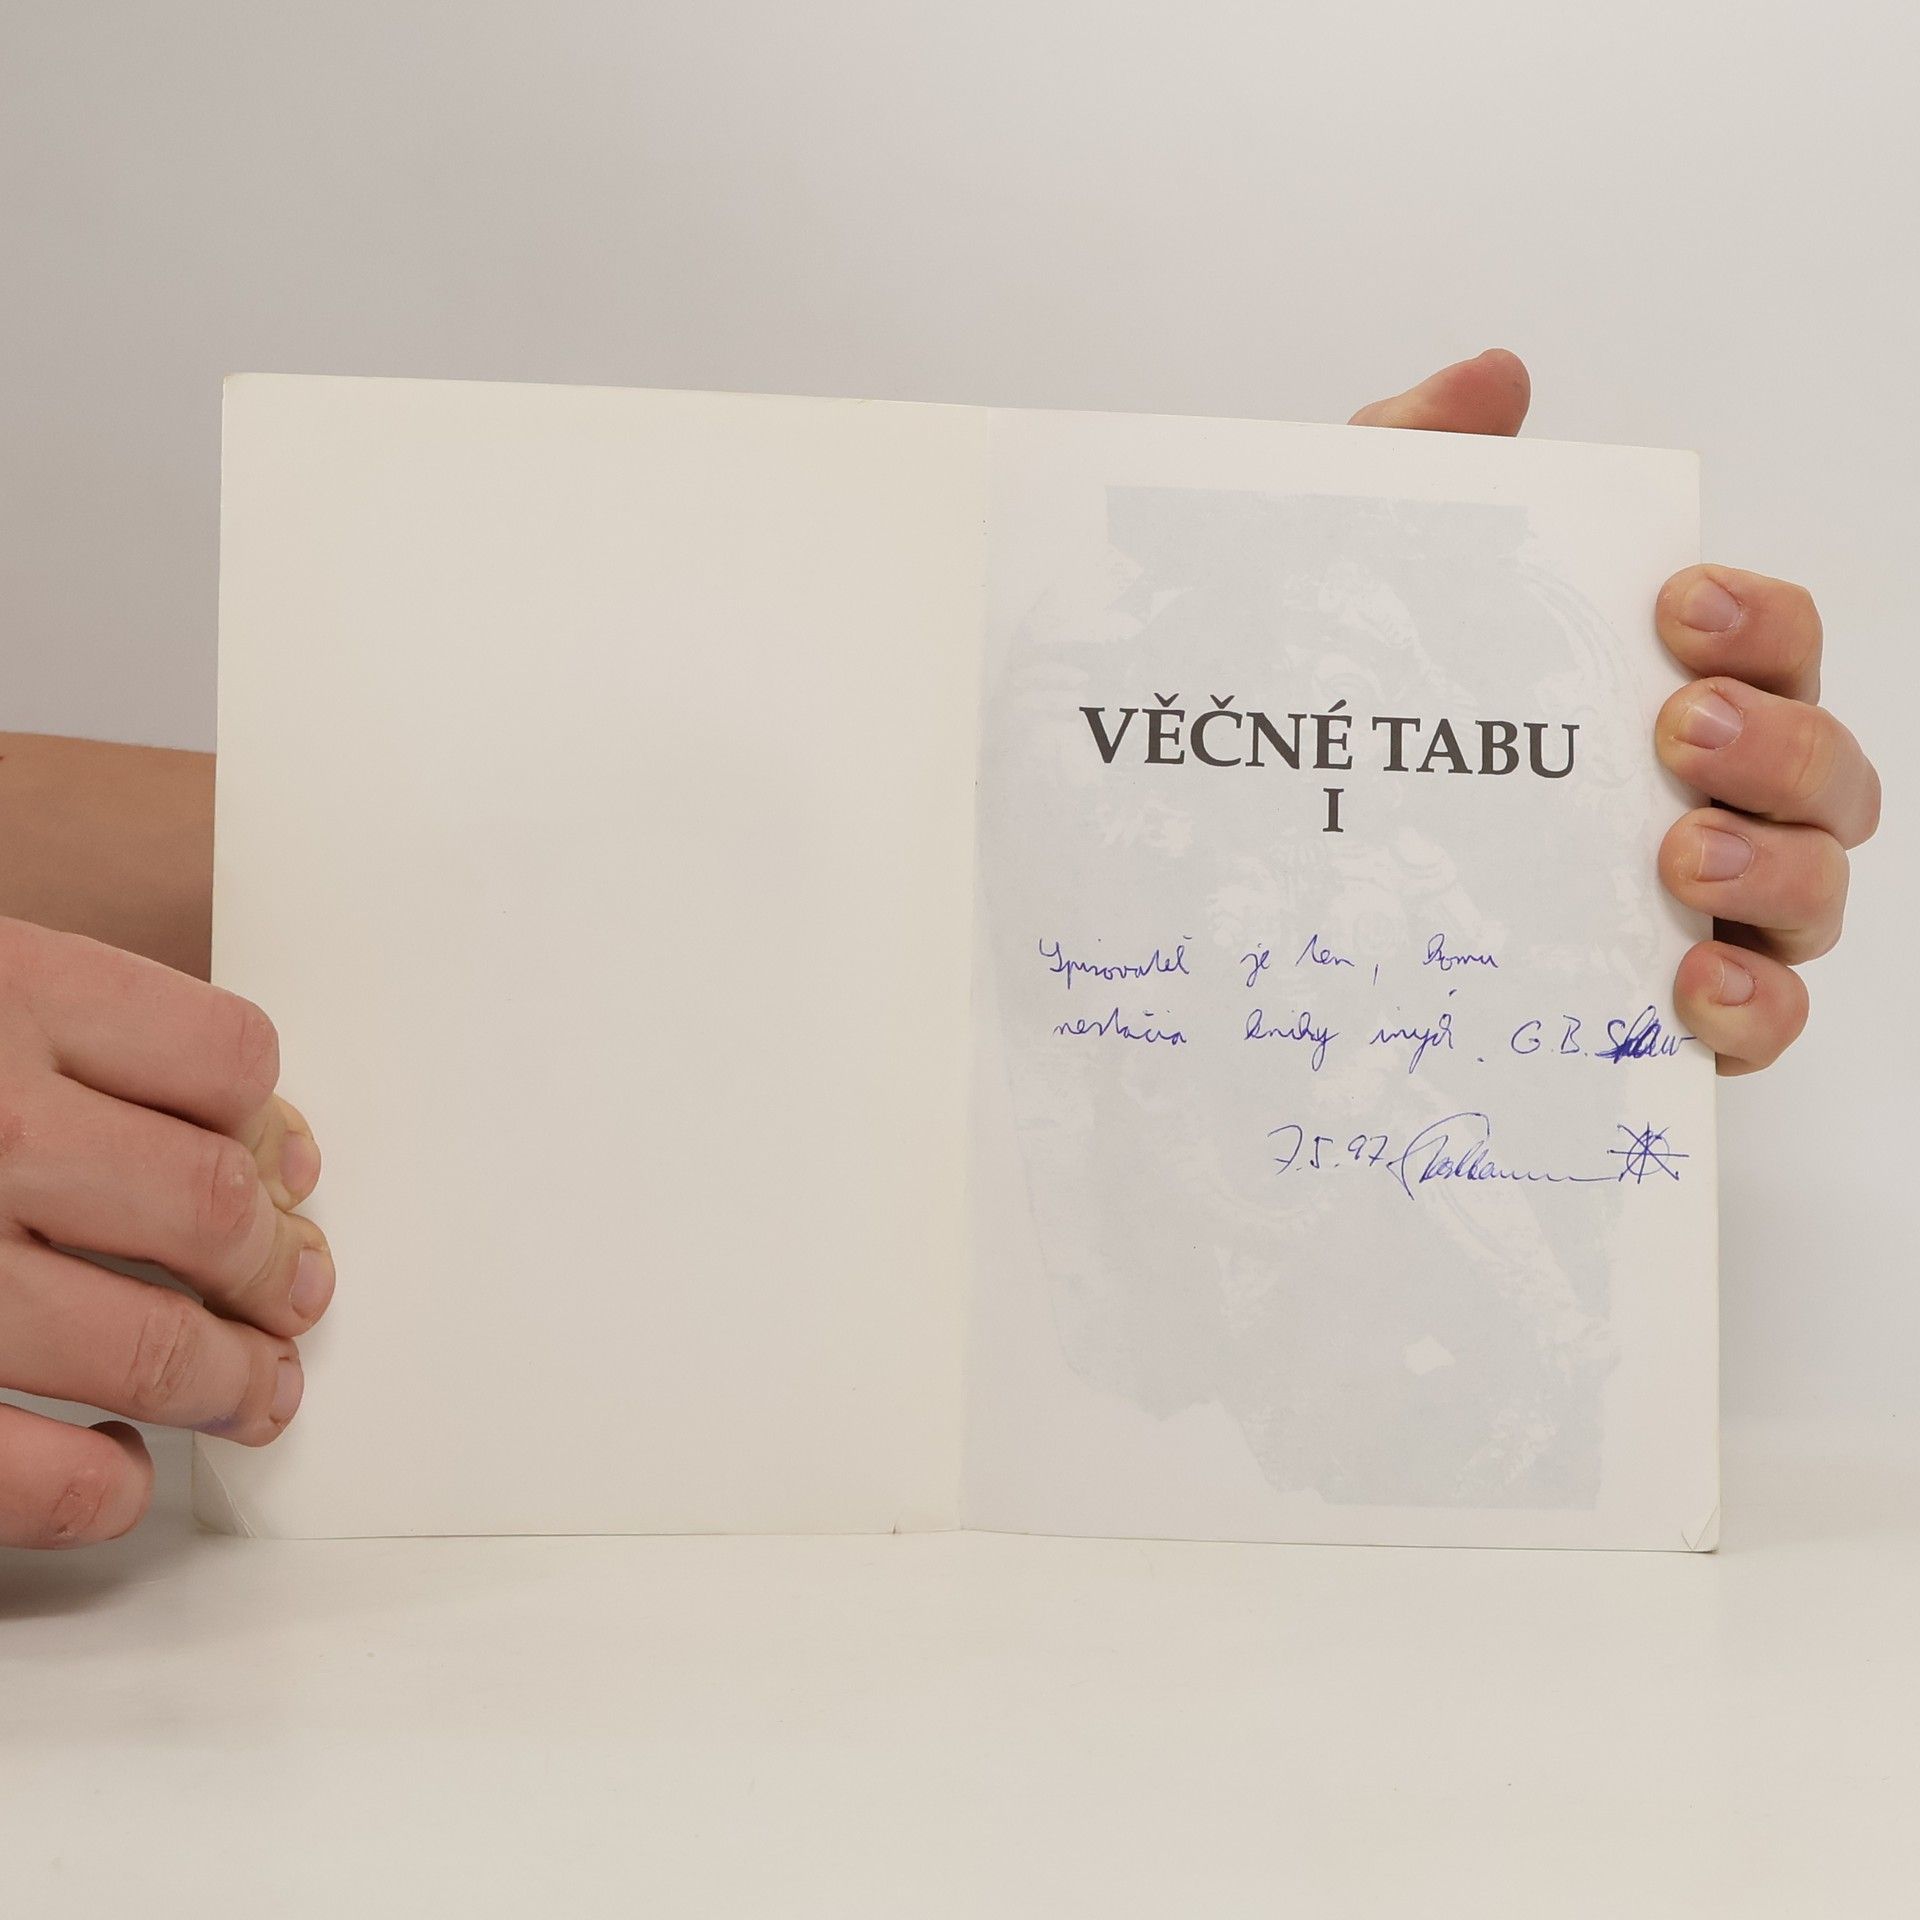 VĚČNÉ TABU
I
Spisovateľ je ten, komu
nestačia knihy iných. G.B. Shaw
7.5.97